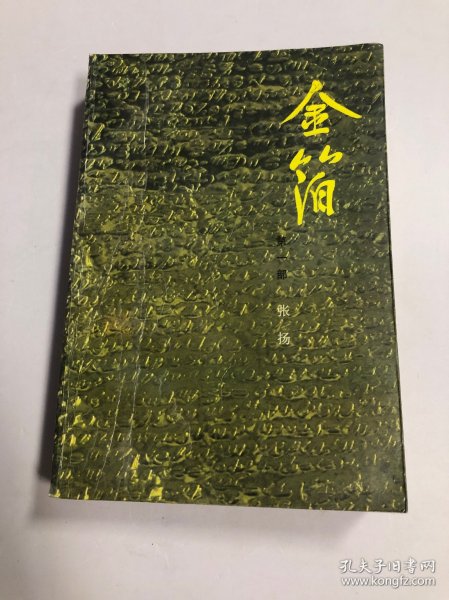 金箔
第一部
张扬
孔夫子旧书网
www.kongfz.com